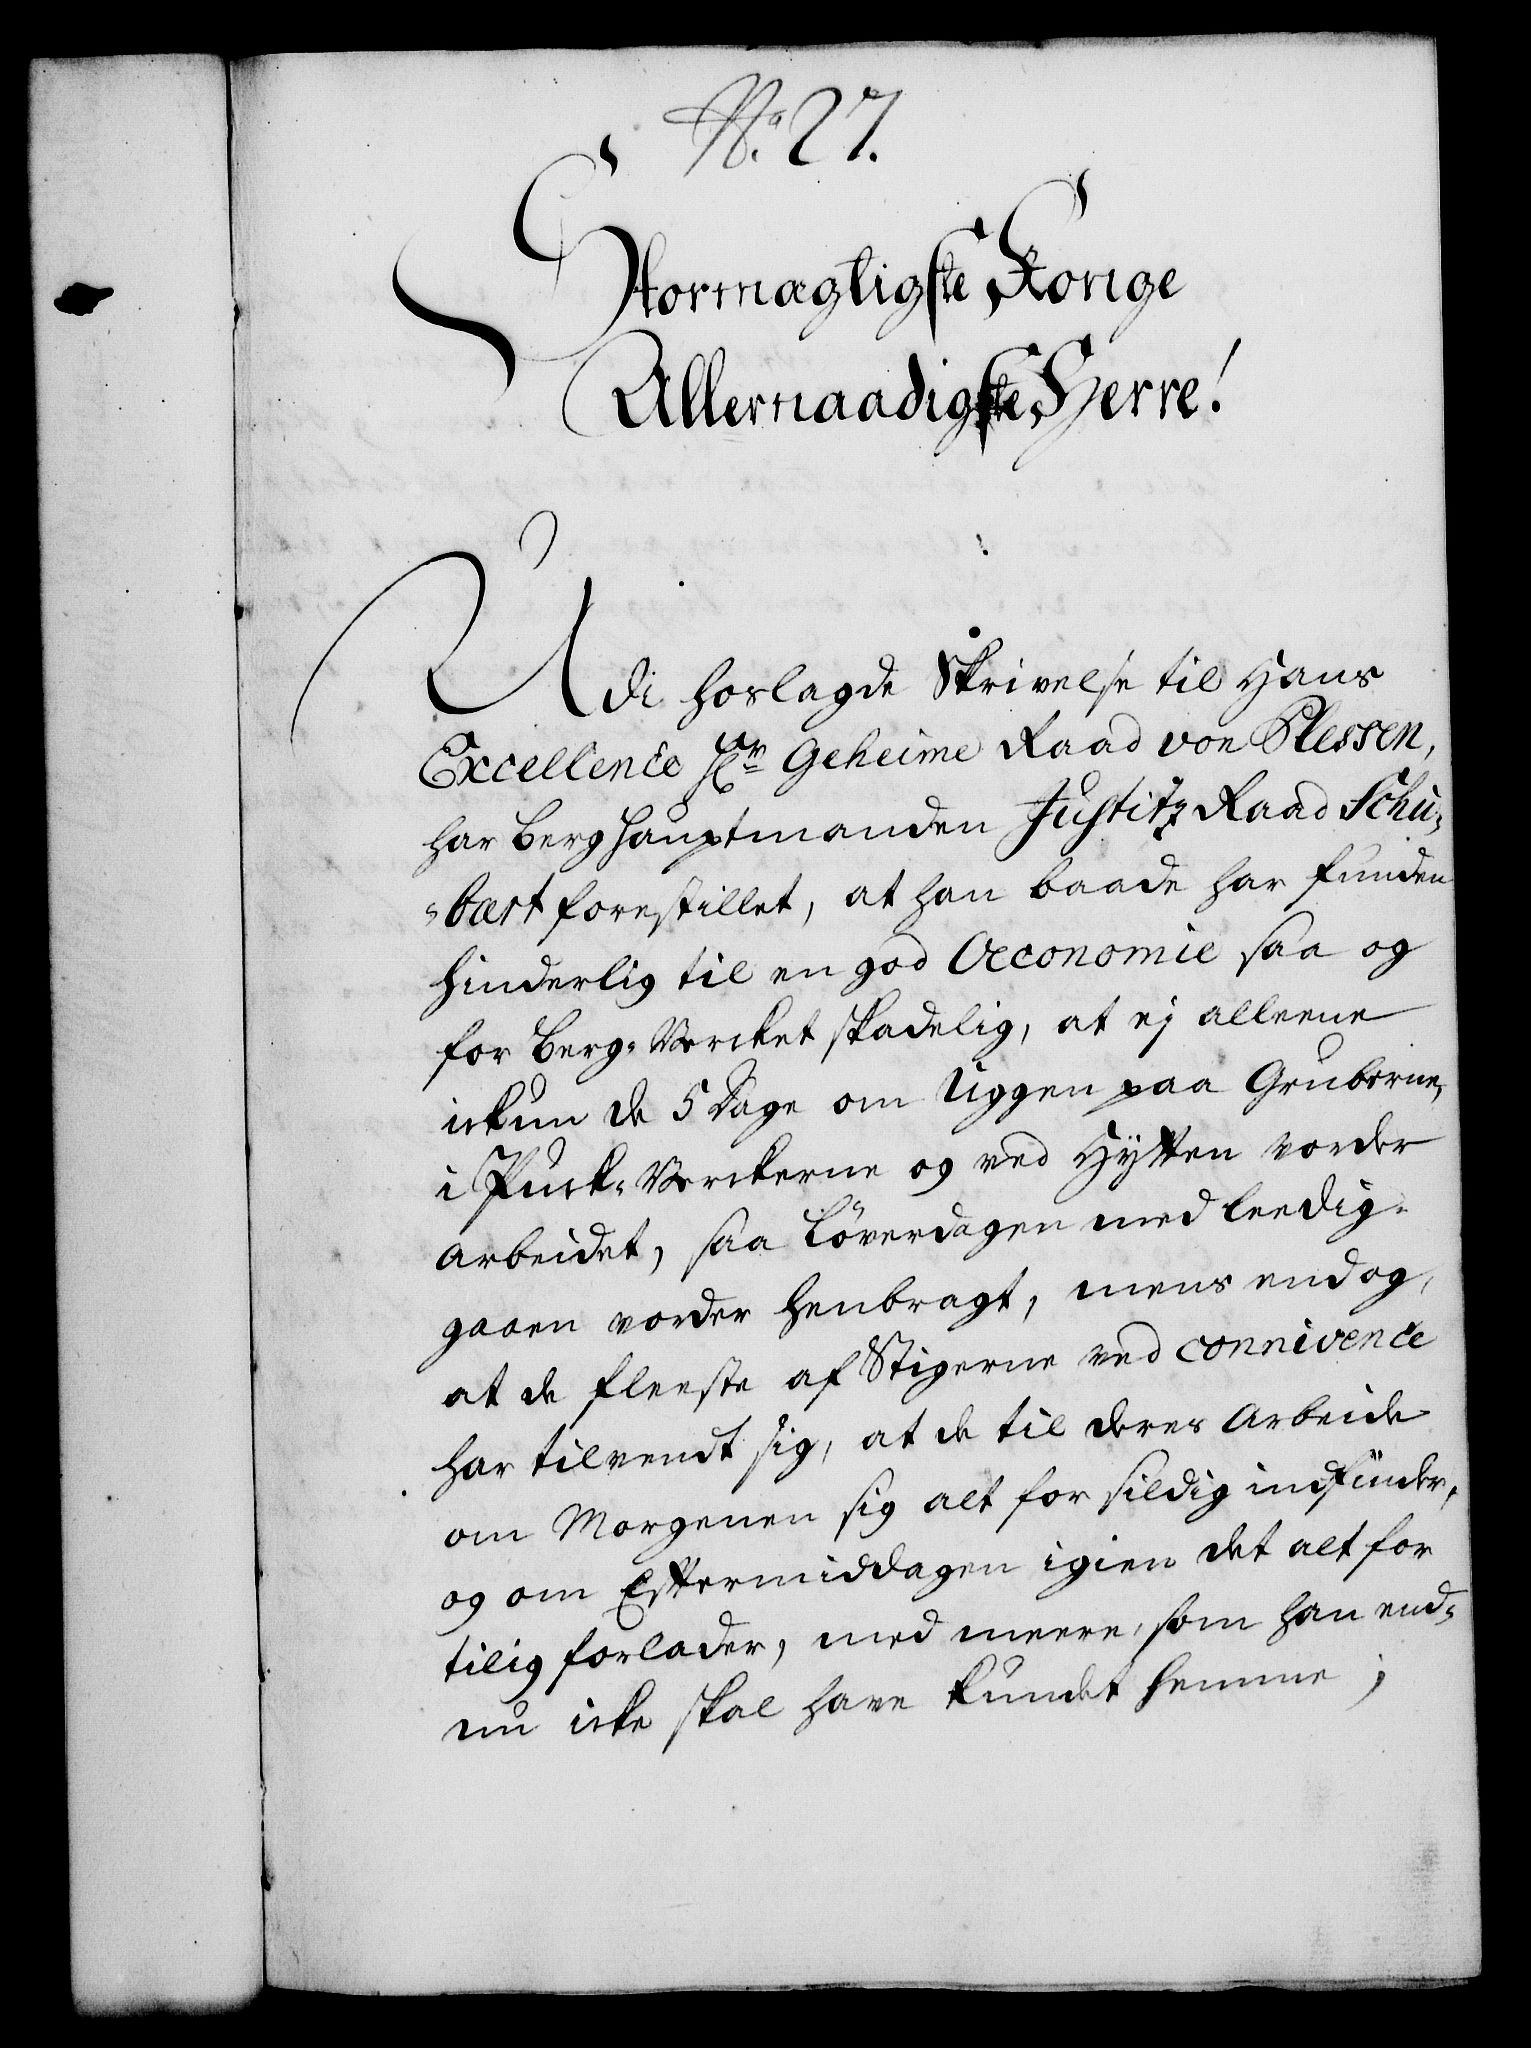 No. 27.
Stormægtigste Konge
Allernaadigste Herre!
Udi hoslagde Skrivelse til Hans
Excellence Hr Geheime Raad von Plessen,
har Berghauptmanden Justitz Raad Schu-
-bært forestillet, at han baade har funden
hinderlig til en god Oeconomie saa og
for Berg-Vercket skadelig, at ej alleene
ickun de 5 Dage om Uggen paa Gruberne,
i Puck-Verckerne og ved Hytten vorder
arbeidet, saa Løverdagen med leedig-
gaaen vorder henbragt, mens endog,
at de fleeste af Stigerne ved connivence
har tilvendt sig, at de til deres Arbeide
om Morgenen sig alt for sildig indfinder,
og om Eftermiddagen igien det alt for
tilig forlader, med meere, som han end-
nu icke skal have kundet hemme;